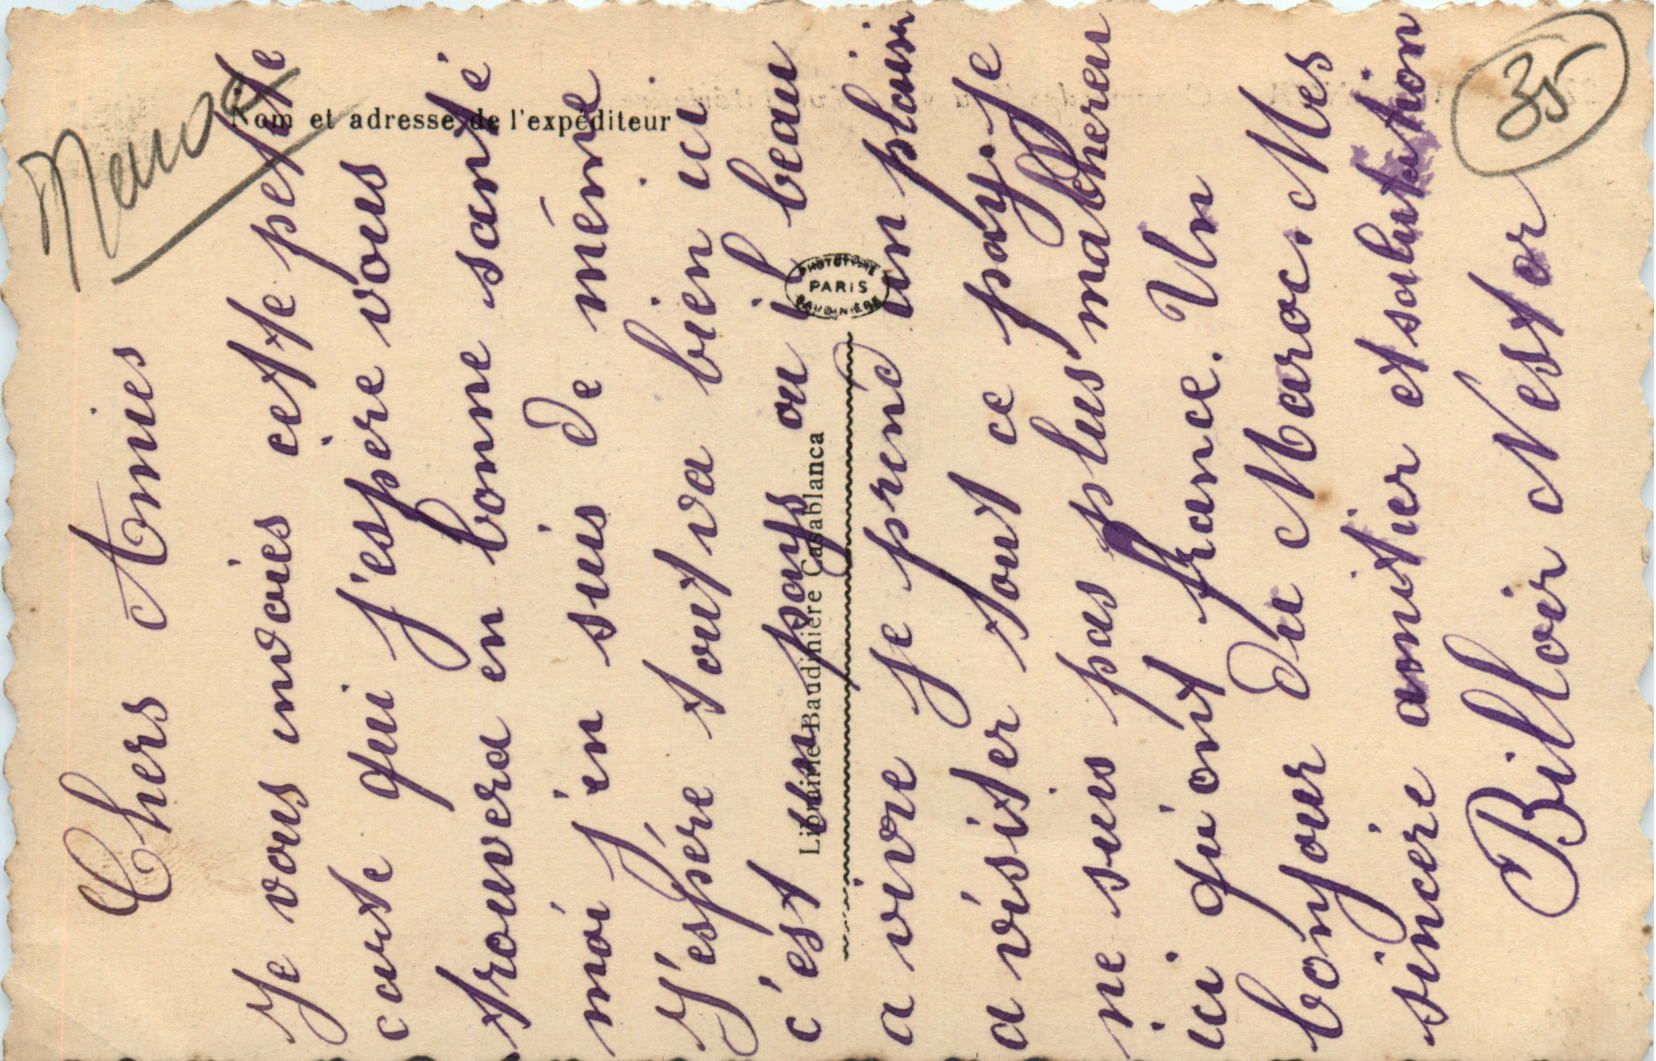 Chers Amies
Je vous envoies cette petite
carte qui j'espère vous
trouvera en bonne santé
moi j'en suis de même
J'espére tout va bien ici
c'est un pays ou il beau
a vivre je prend un plaisir
a visiter tout ce pays. Je
ne suis pas plus malchereu
ici qui ont france. Un
bonjour du Maroc. Mes
sincère amitier et salutation
Billoir Nestor
Nom et adresse de l'expéditeur
Librairie Baudinière Casablanca
PHOTOTYPIE
PARIS
BAUDINIÈRE
35